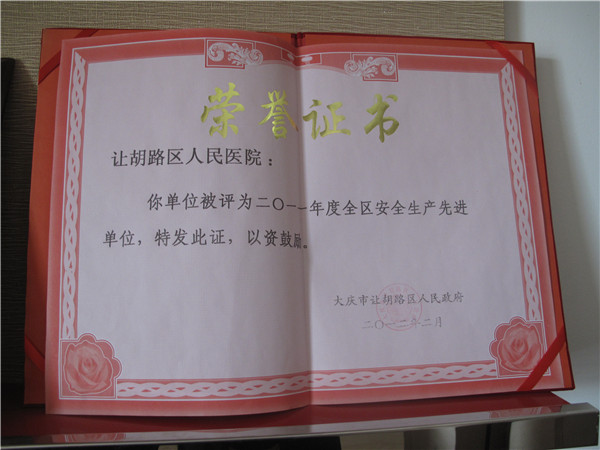 荣誉证书
让胡路区人民医院：
你单位被评为二〇一一年度全区安全生产先进
单位，特发此证，以资鼓励。
大庆市让胡路区人民政府
二〇一二年二月